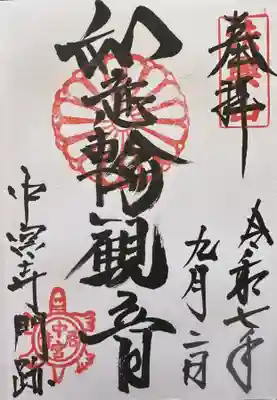 奉拝
令和七年
九月二日
如意輪觀音
中宮寺門跡